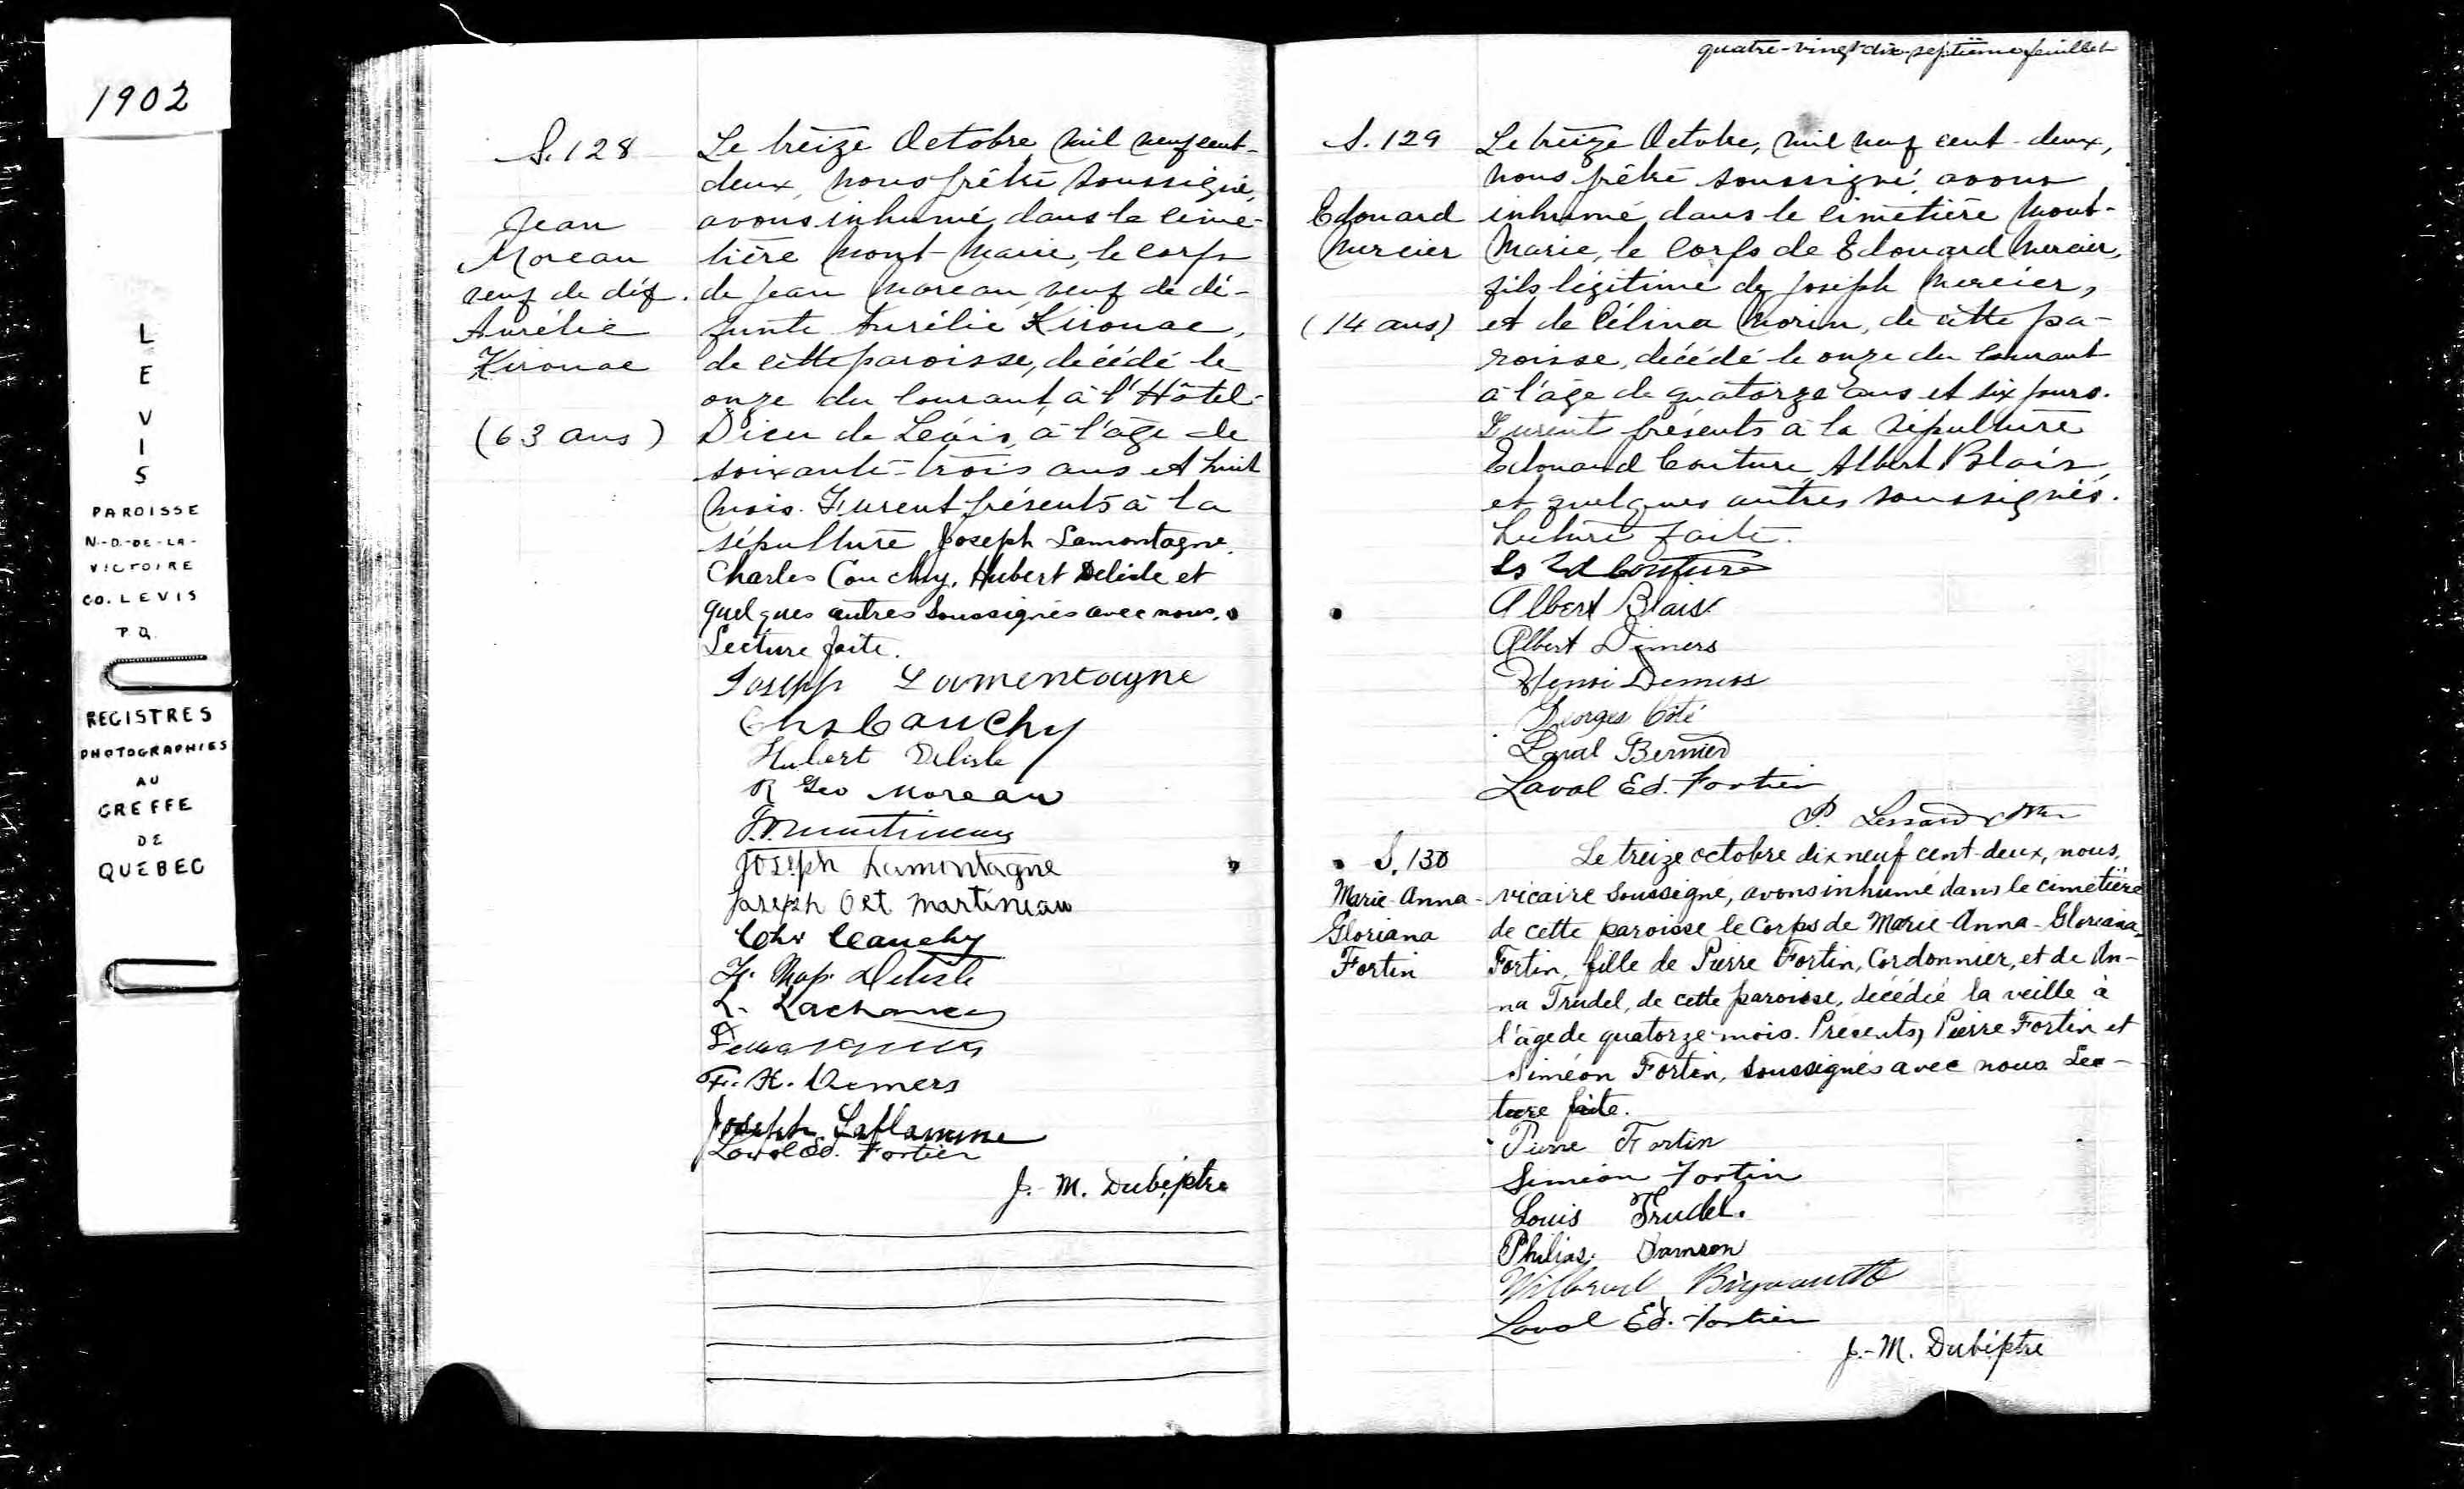 1902
LEVIS
PAROISSE
N.-D.-DE-LA-
VICTOIRE
CO. LEVIS
P.Q.
REGISTRES
PHOTOGRAPHIES
AU
GREFFE
DE
QUEBEC
S. 128
Jean
Moreau
veuf de déf.
Aurélie
Kirouac
(63 ans)
Le treize Octobre mil neuf cent-
deux, nous prêtre soussigné,
avons inhumé dans le cime-
tière Mont-Marie, le corps
de Jean Moreau, veuf de dé-
funte Aurélie Kirouac,
de cette paroisse, décédé le
onze du courant, à l'Hôtel-
Dieu de Lévis, à l'âge de
soixante-trois ans et huit
mois. Furent présents à la
sépulture Joseph Lamontagne,
Charles Couchy, Hubert Delisle et
quelques autres soussignés avec nous.
Lecture faite.
Joseph Lamontagne
Chs Cauchy
Hubert Delisle
R Geo Moreau
Joseph Lamontagne
Joseph Oct Martineau
Chs Cauchy
H. Nap. Delisle
L. Lachance
F. X. Demers
Joseph Laflamme
Laval Ed. Fortier
J.-M. Dubé, ptre
quatre-vingt-dix-septième feuillet
S. 129
Edouard
Mercier
(14 ans)
Le treize Octobre, mil neuf cent-deux,
nous prêtre soussigné, avons
inhumé dans le cimetière Mont-
Marie, le corps de Edouard Mercier,
fils légitime de Joseph Mercier,
et de Célina Morin, de cette pa-
roisse, décédé le onze du courant
à l'âge de quatorze ans et six jours.
Furent présents à la sépulture
Edouard Couture, Albert Blais,
et quelques autres soussignés.
Lecture faite.
Ed Couture
Albert Blais
Albert Demers
Henri Demers
Georges Côté
Laval Bernier
Laval Ed. Fortier
P. Lessard Ptre
S. 130
Marie-Anna-
Gloriana
Fortin
Le treize octobre dix neuf cent-deux, nous,
vicaire soussigné, avons inhumé dans le cimetière
de cette paroisse le corps de Marie-Anna-Gloriana
Fortin, fille de Pierre Fortin, Cordonnier, et de An-
na Trudel, de cette paroisse, décédée la veille à
l'âge de quatorze mois. Présents, Pierre Fortin et
Siméon Fortin, soussignés avec nous. Lec-
ture faite.
Pierre Fortin
Simeon Fortin
Louis Trudel.
Philias Samson
Wilbrod Bigaouette
Laval Ed. Fortier
J.-M. Dubé, ptre